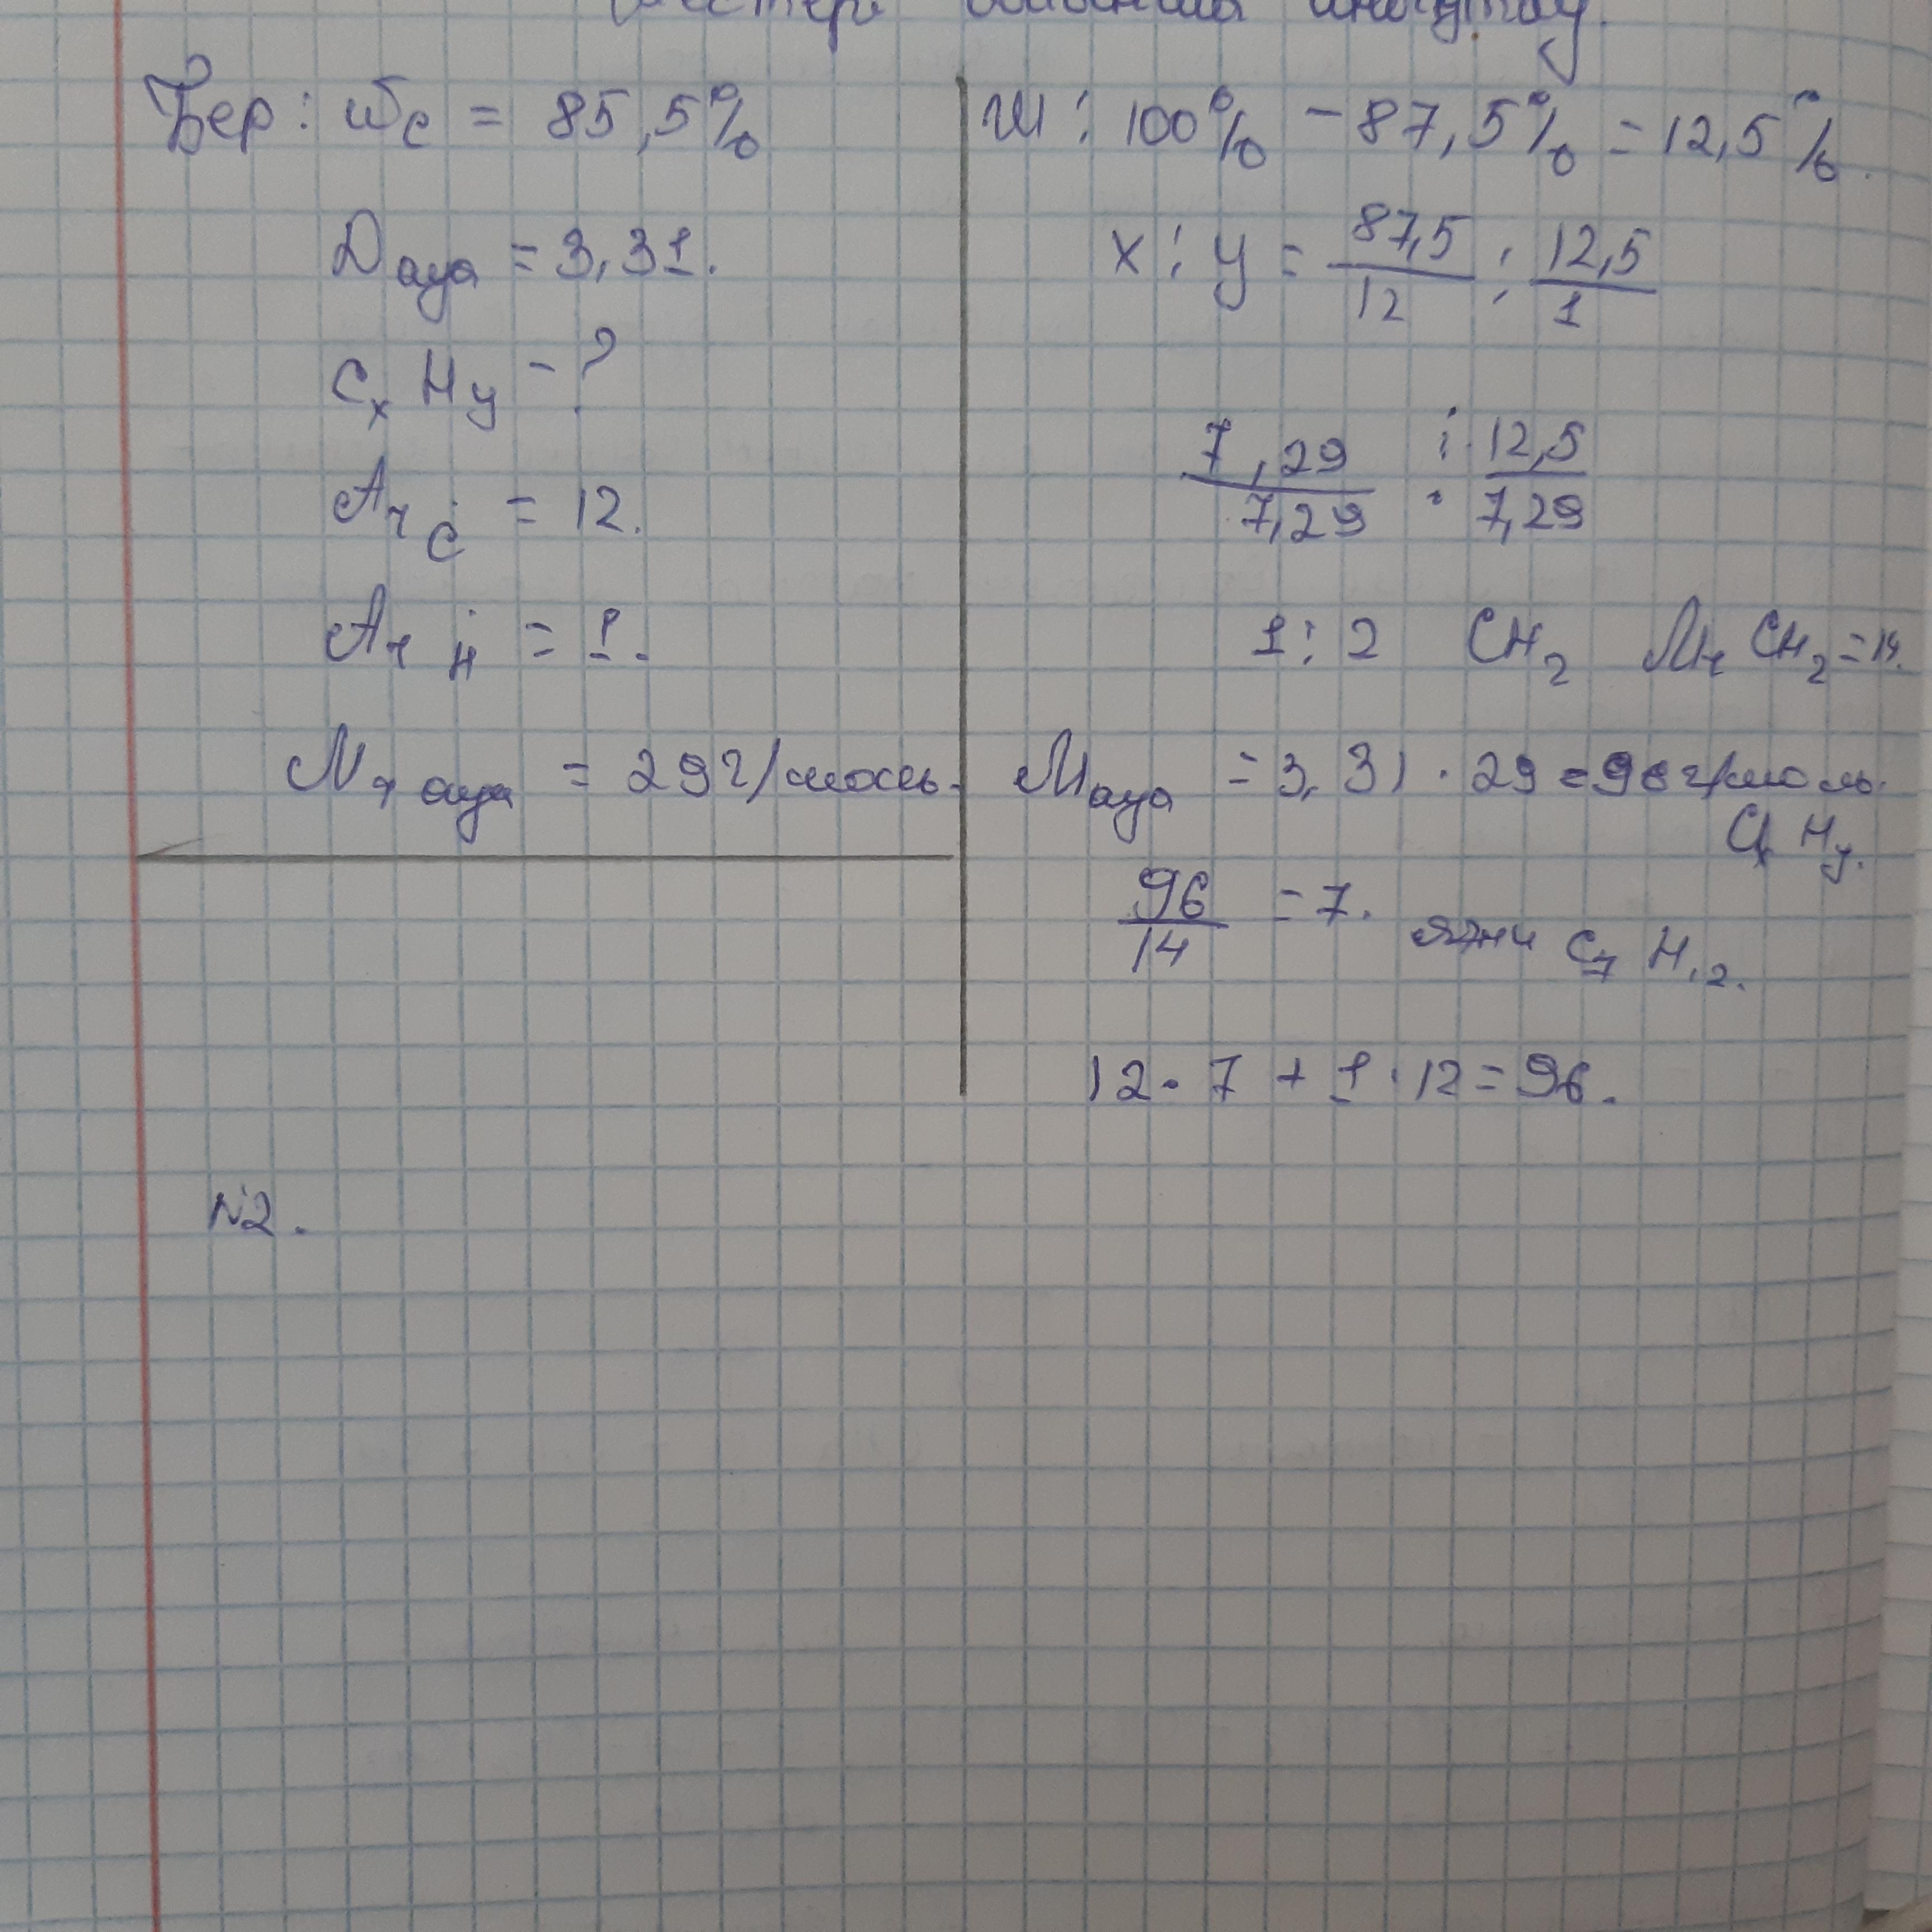 Бер: ωc = 85,5%
Dауа = 3,31.
CxHy - ?
Ar C = 12.
Ar H = 1.
Mr ауа = 29 г/моль.
Ш: 100% - 87,5% = 12,5%.
x : y = 87,5/12 : 12,5/1
7,29/7,29 : 12,5/7,29
1 : 2 CH2 Mr CH2 = 14.
Mауа = 3,31 · 29 = 96 г/моль.
CxHy.
96/14 = 7. яғни C7H12.
12 · 7 + 1 · 12 = 96.
№2.